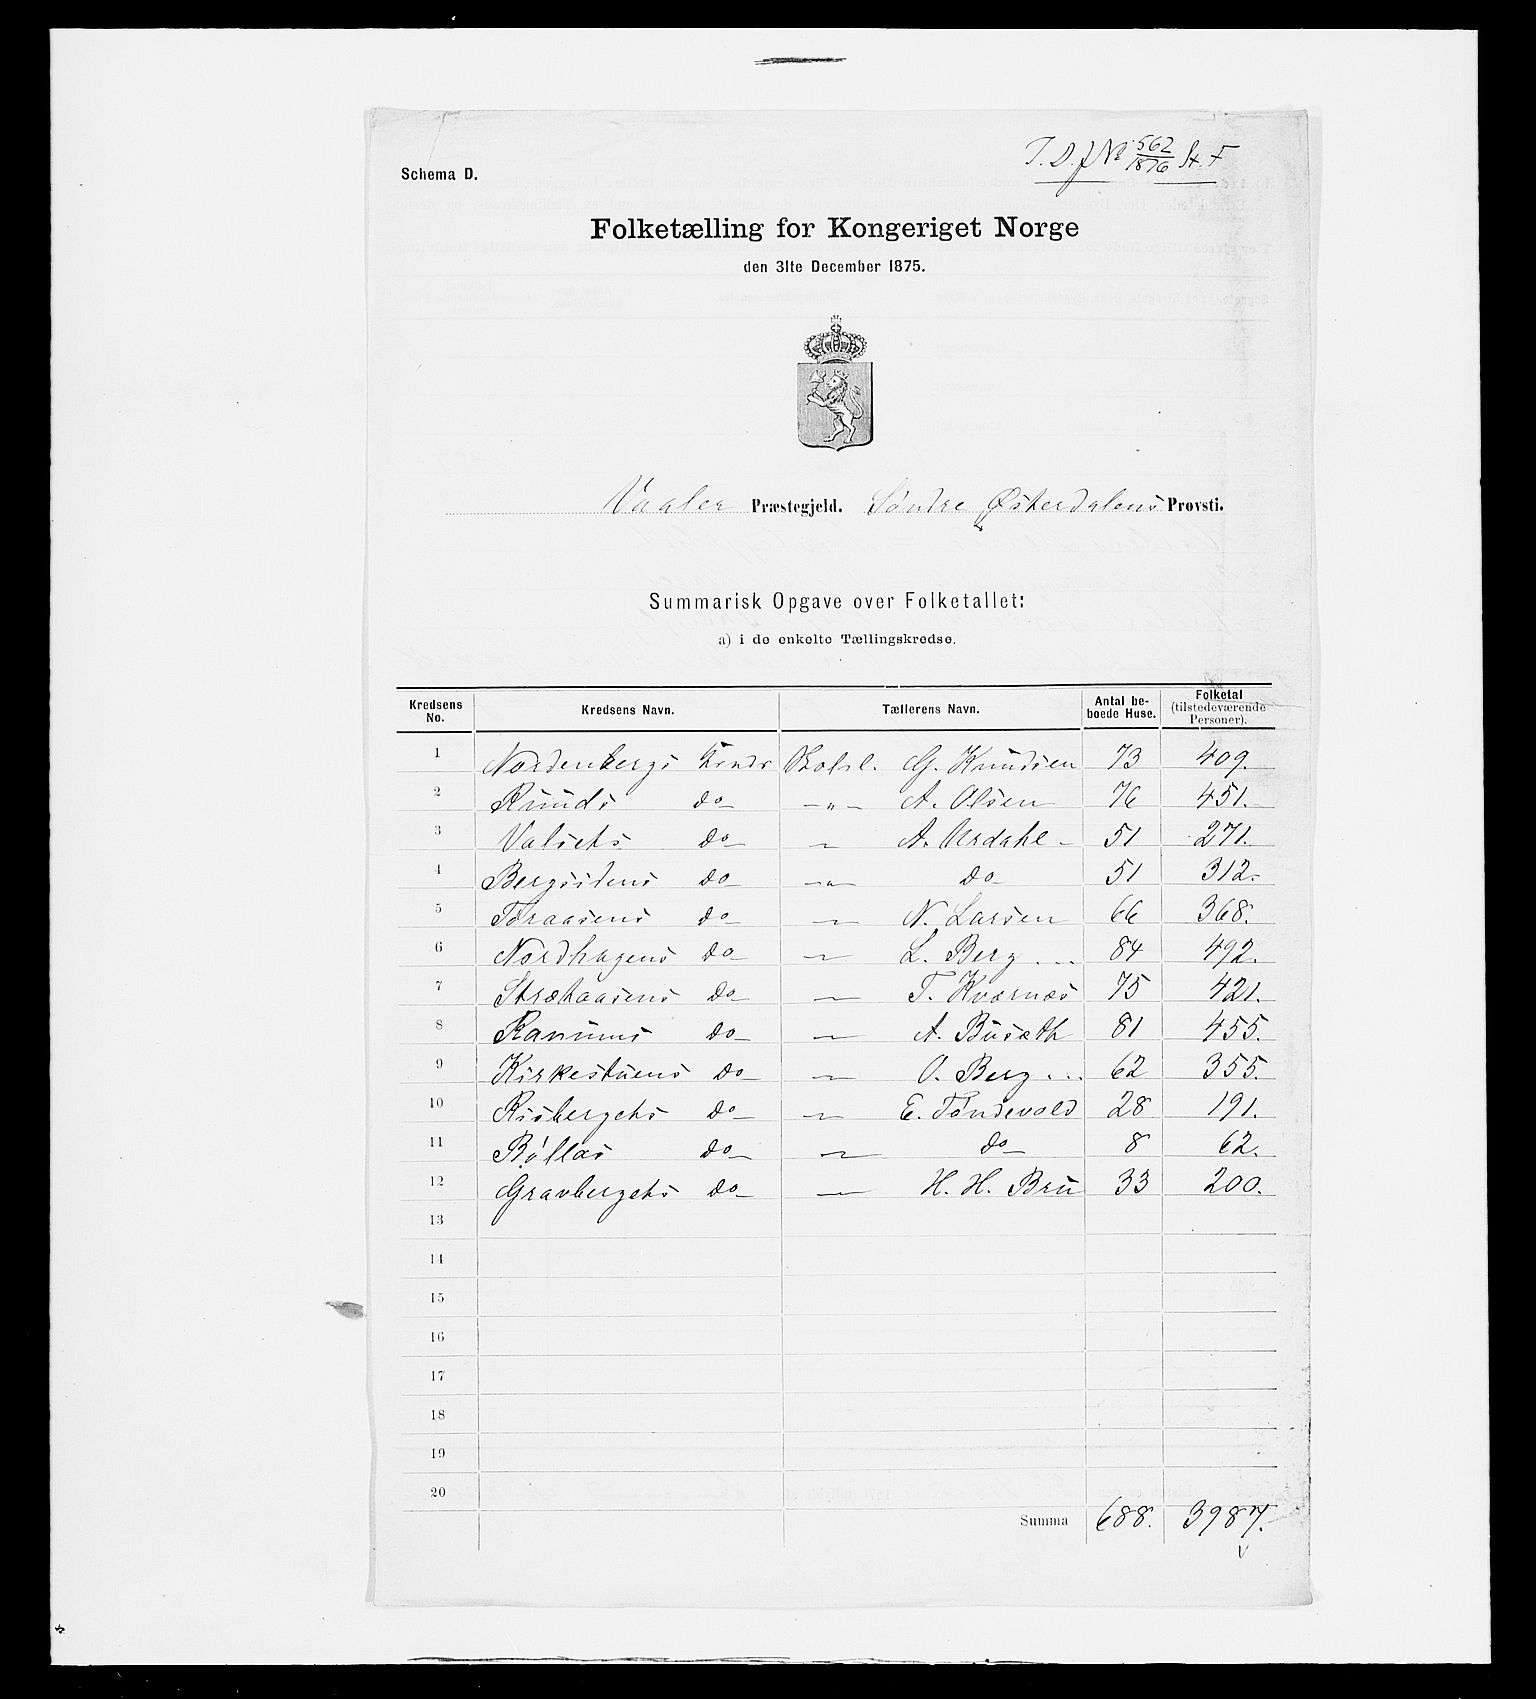 T. D. J No 562/1876 St. F
Schema D.
Folketælling for Kongeriget Norge
den 31te December 1875.
Vaaler Præstegjeld. Søndre Østerdalens Provsti.
Summarisk Opgave over Folketallet:
a) i de enkelte Tællingskredse.
Kredsens No. Kredsens Navn. Tællerens Navn. Antal beboede Huse. Folketal (tilstedeværende Personer).
1 Nordenbergs Kreds Skolel. G. Knudsen 73 409.
2 Ruuds do - " - A. Olsen 76 451.
3 Valsets do — A. Urdahl - 51 271.
4 Bergsidens do - " - do 51 312.
5 Toraasens do — N. Larsen 66 368.
6 Nordhagens do — L. Berg ... 84 492.
7 Strætaasens do — T. Kværnæs 75 421.
8 Ranums do — A. Busæth 81 455.
9 Kirkestuens do — O. Berg ... 62 355.
10 Risbergets do — E. Tøndevold 28 191.
11 Bøllas do — do 8 62.
12 Gravbergets do — H. H. Bru 33 200.
13
14
15
16
17
18
19
20
Summa 688. 3987.